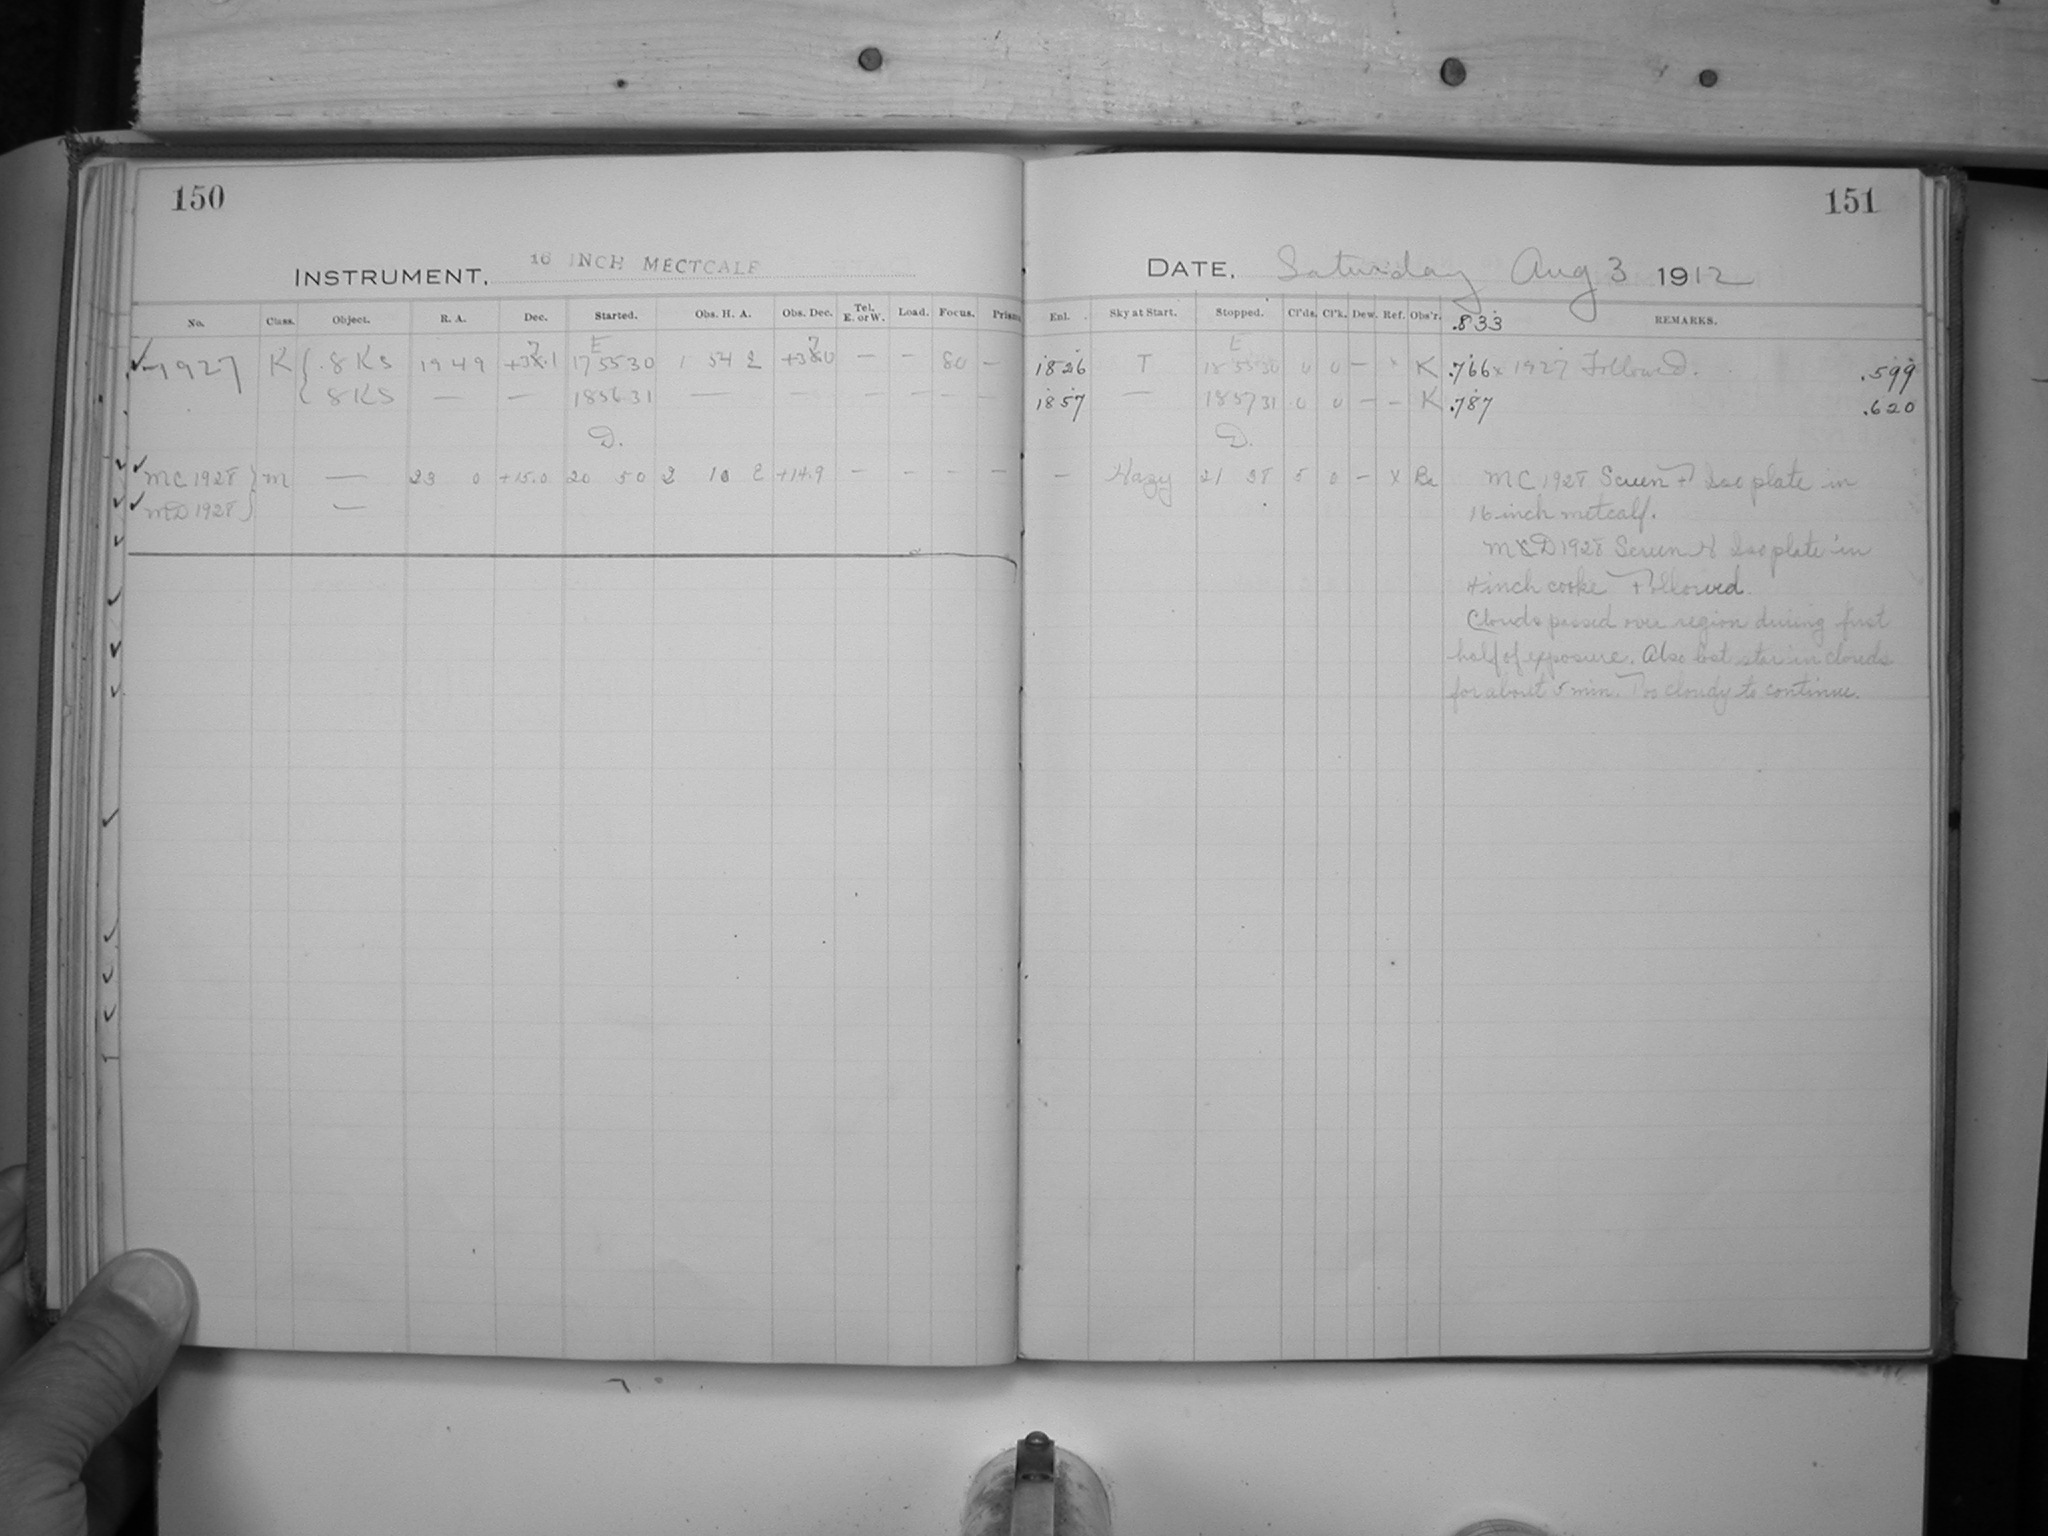 150
151
INSTRUMENT. 16 INCH MECTCALF
DATE. Saturday Aug 3 1912
No. Class. Object. R. A. Dec. Started. Obs. H. A. Obs. Dec. Tel. E. or W. Load. Focus. Prism. Enl. Sky at Start. Stopped. Cl'ds. Cl'k. Dew. Ref. Obs'r. .833 REMARKS.
E E
1927 K .8Ks 19 49 17 55 30 1 54 E — — 80 — 1826 T 18 55 30 0 0 — K .766 x 1927 Followed. .599
8KS — — 18 56 31 — — — — — — 1857 — 18 57 31 0 0 — – K .787 .620
D. D.
MC 1928 M — 23 0 +15.0 20 50 2 10 E +14.9 — — — — — Hazy 21 38 5 0 — X MC 1928 Screen + Iso plate in
MD 1928 — 16-inch metcalf.
MD 1928 Screen & Iso plate in
4 inch cooke Followed.
Clouds passed over region during first
half of exposure. Also lost star in clouds
for about 5 min. Too cloudy to continue.